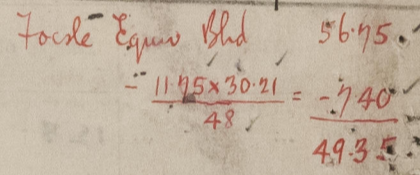 Focsle Equiv Blhd 56.75
- 11.75 x 30.21 / 48 = - 7.40
49.35